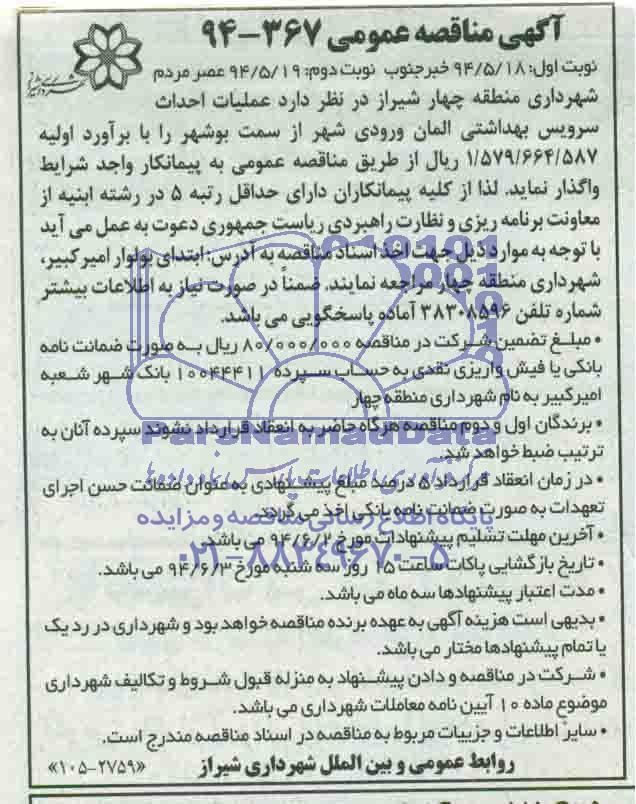 آگهی مناقصه عمومی ۳۶۷-۹۴
نوبت اول: ۹۴/۵/۱۸ خبرجنوب نوبت دوم: ۹۴/۵/۱۹ عصر مردم
شهرداری منطقه چهار شیراز در نظر دارد عملیات احداث
سرویس بهداشتی المان ورودی شهر از سمت بوشهر را با برآورد اولیه
۱/۵۷۹/۶۶۴/۵۸۷ ریال از طریق مناقصه عمومی به پیمانکار واجد شرایط
واگذار نماید. لذا از کلیه پیمانکاران دارای حداقل رتبه ۵ در رشته ابنیه از
معاونت برنامه ریزی و نظارت راهبردی ریاست جمهوری دعوت به عمل می آید
با توجه به موارد ذیل جهت اخذ اسناد مناقصه به آدرس: ابتدای بولوار امیرکبیر،
شهرداری منطقه چهار مراجعه نمایند. ضمناً در صورت نیاز به اطلاعات بیشتر
شماره تلفن ۳۸۳۰۸۵۹۶ آماده پاسخگویی می باشد.
• مبلغ تضمین شرکت در مناقصه ۸۰/۰۰۰/۰۰۰ ریال به صورت ضمانت نامه
بانکی یا فیش واریزی نقدی به حساب سپرده ۱۰۰۴۴۴۱۱ بانک شهر شعبه
امیرکبیر به نام شهرداری منطقه چهار
• برندگان اول و دوم مناقصه هرگاه حاضر به انعقاد قرارداد نشوند سپرده آنان به
ParsNamadData
ترتیب ضبط خواهد شد.
• در زمان انعقاد قرارداد ۵ درصد مبلغ پیشنهادی به عنوان ضمانت حسن اجرای
تعهدات به صورت ضمانت نامه بانکی اخذ می گردد.
پایگاه اطلاع رسانی مناقصه و مزایده
• آخرین مهلت تسلیم پیشنهادات مورخ ۹۴/۶/۲ می باشد.
۰۲۱-۸۸۳۴۹۶۷۰-۵
• تاریخ بازگشایی پاکات ساعت ۱۵ روز سه شنبه مورخ ۹۴/۶/۳ می باشد.
• مدت اعتبار پیشنهادها سه ماه می باشد.
• بدیهی است هزینه آگهی به عهده برنده مناقصه خواهد بود و شهرداری در رد یک
یا تمام پیشنهادها مختار می باشد.
• شرکت در مناقصه و دادن پیشنهاد به منزله قبول شروط و تکالیف شهرداری
موضوع ماده ۱۰ آیین نامه معاملات شهرداری می باشد.
• سایر اطلاعات و جزییات مربوط به مناقصه در اسناد مناقصه مندرج است.
روابط عمومی و بین الملل شهرداری شیراز «۱۰۵-۲۷۵۹»